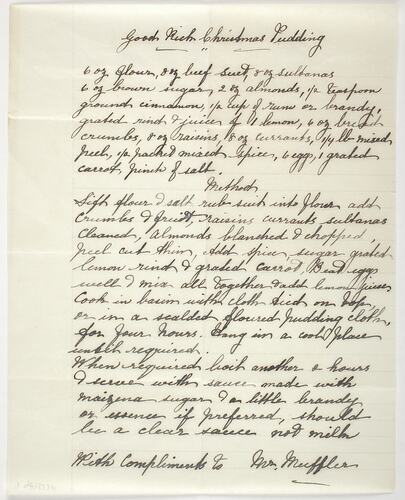 Good Rich Christmas Pudding
6 oz flour, 8 oz beef suet, 8 oz sultanas
6 oz brown sugar, 2 oz almonds, 1/2 teaspoon
ground cinnamon, 1/2 cup of rum or brandy,
grated rind & juice of 1 lemon, 6 oz bread
crumbs, 8 oz raisins, 8 oz currants, 1/4 lb mixed
peel, 1/2 packet mixed spice, 6 eggs, 1 grated
carrot, pinch of salt.
Method
Sift flour & salt rub suet into flour add
crumbs & fruit, raisins currants sultanas
cleaned, almonds blanched & chopped,
peel cut thin, Add spice, sugar grated
lemon rind & grated carrot, Beat eggs
well & mix all together & add lemon juice.
Cook in basin with cloth tied on top
or in a scalded floured pudding cloth,
for four hours. Hang in a cool place
until required.
When required boil another 2 hours
& serve with sauce made with
maizena sugar & a little brandy
or essence if preferred, should
be a clear sauce not milk
With Compliments to Mr. Muffler